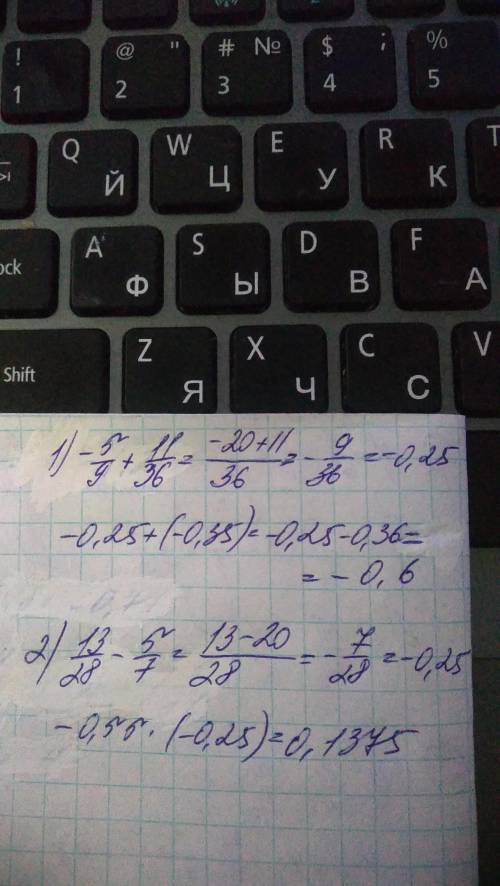 ! @ " # № $ ; %
1 2 3 4 5
Q W E R T
Й Ц У К
ock A S D F
Ф Ы В А
Shift Z X C V
Я Ч С
1) -5/9 + 11/36 = -20+11/36 = -9/36 = -0,25
-0,25+(-0,35)=-0,25-0,36=
= -0,6
2) 13/28 - 5/7 = 13-20/28 = -7/28 = -0,25
-0,55·(-0,25)=0,1375